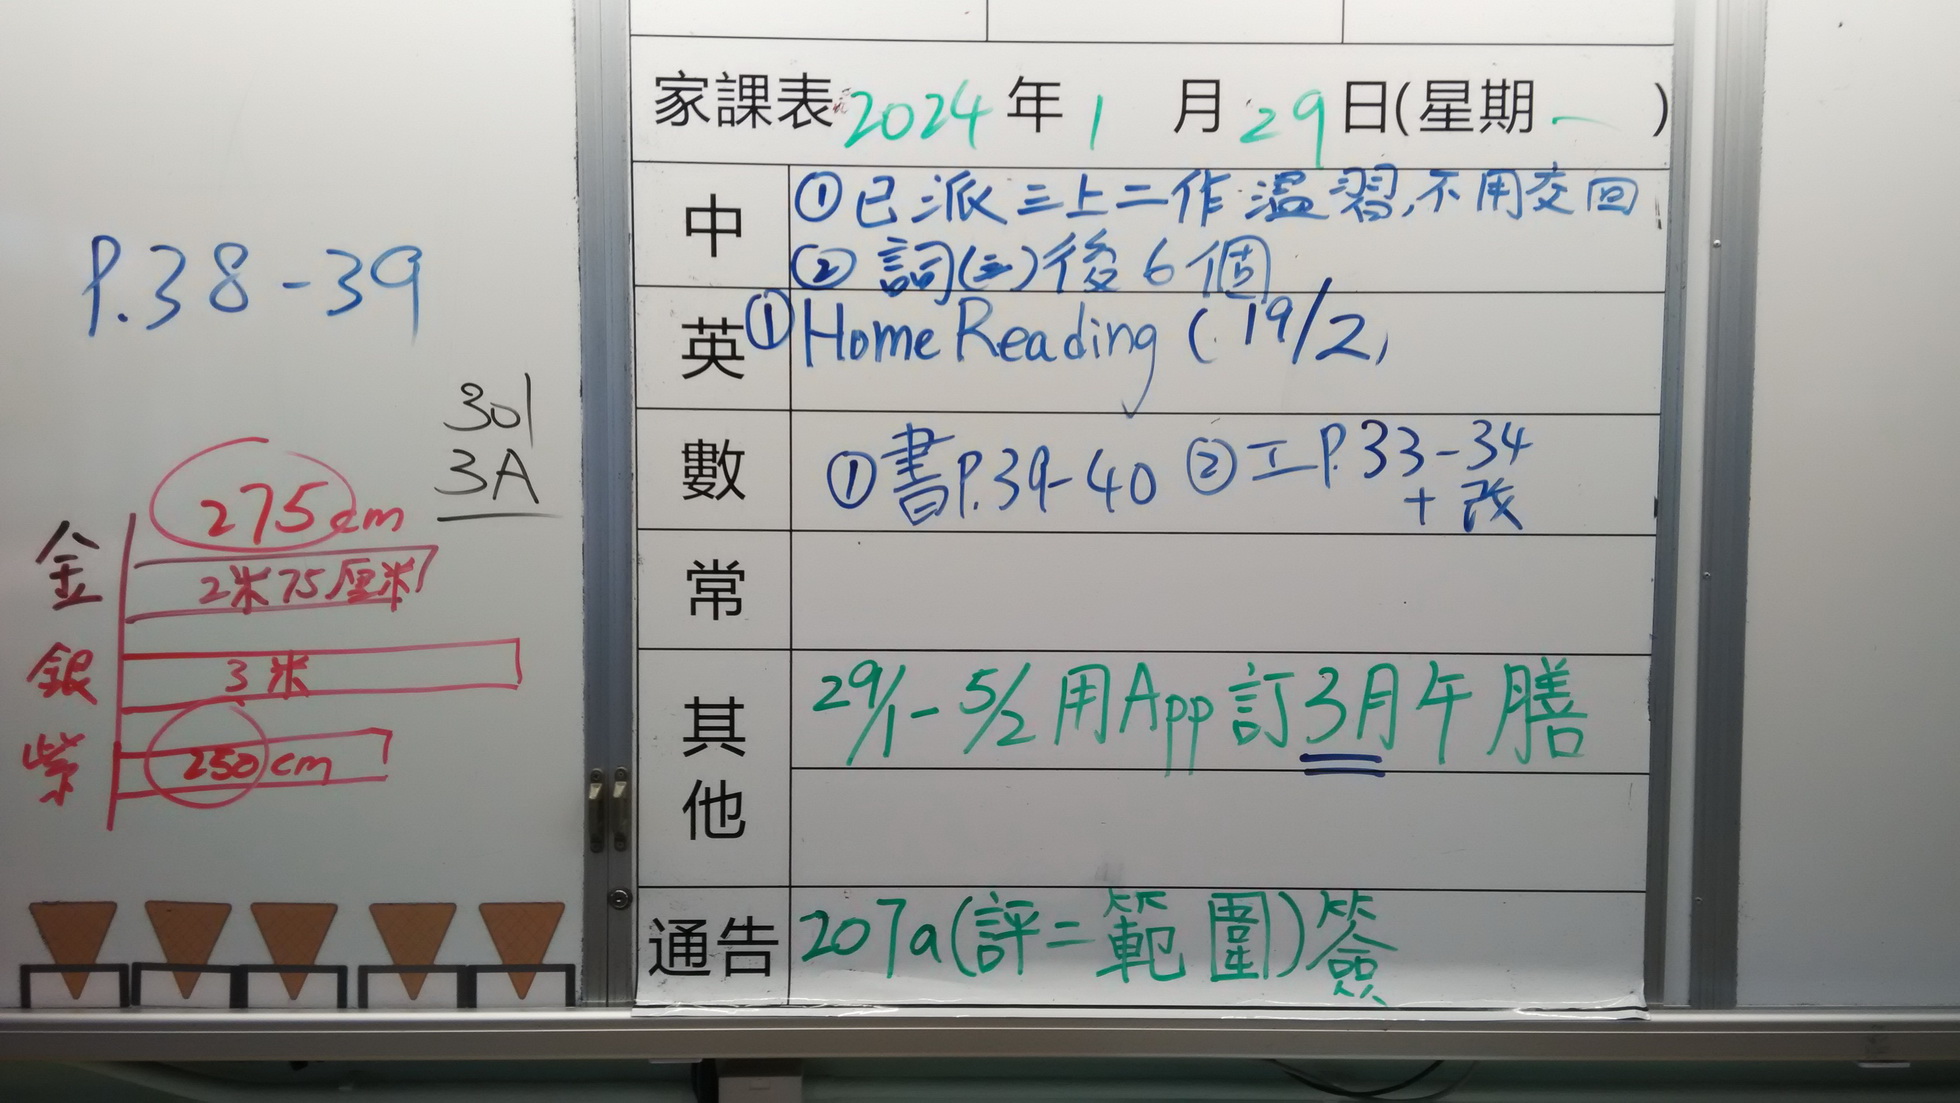 P.38-39
301
3A
275cm
金 2米75厘米
銀 3米
紫 250cm
家課表 2024年1月29日(星期一)
中 ①已派三上二作温習,不用交回
②詞(三)後6個
英 ①Home Reading (19/2)
數 ①書P.39-40 ②工P.33-34
+改
常
其他 29/1-5/2用App訂3月午膳
通告 207a(評二範圍)簽